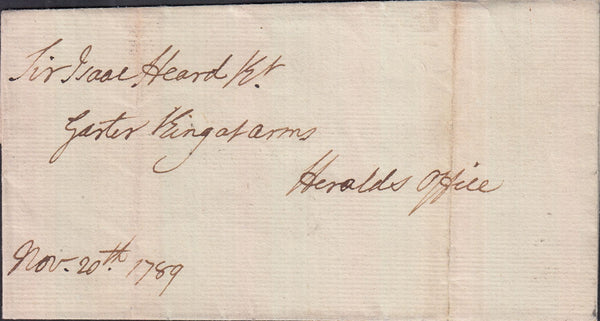 Sir Isaac Heard Kt.
Garter King at arms
Heralds Office
Nov. 20th. 1789